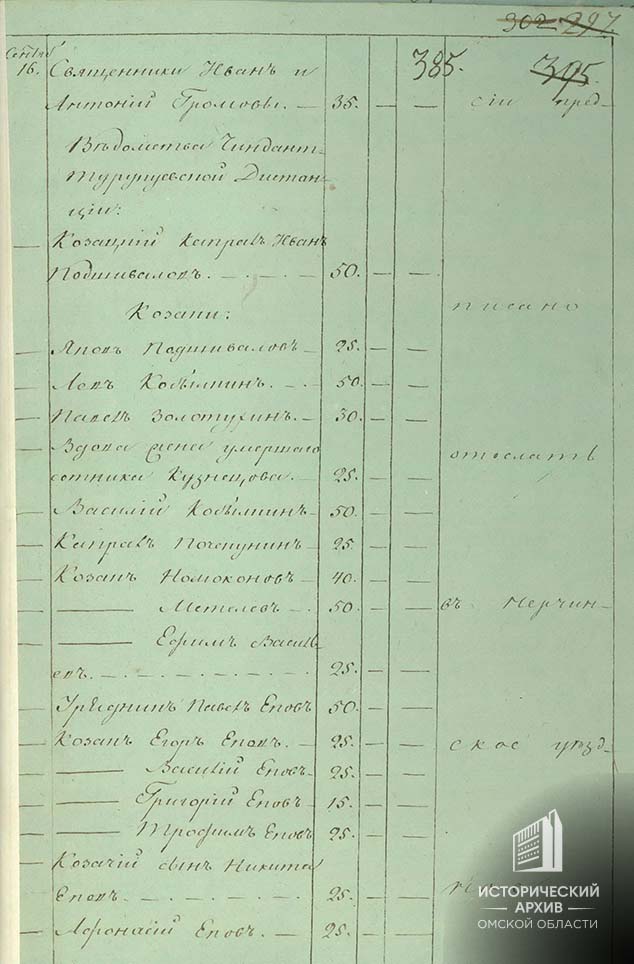 302 297
Сентяб
16. Священники Иванъ и 385. 395.
Антоній Громовы. — 35. — — сіи пред-
Вѣдомства Чиндант-
Турукуевской Дистан-
ціи:
— Козацкій Капралъ Иванъ
Подшиваловъ. — 50. — —
Козаки: писано
— Яковъ Подшиваловъ — 25. — —
— Левъ Кобылкинъ. — 50. — —
— Павелъ Золотухинъ. — 30. — —
— Вдова жена умершаго отослать
сотника Кузнецова. — 25. — —
— Василій Кобылкинъ — 50. — —
— Капралъ Почекунинъ — 25. — —
— Козакъ Номоконовъ — 40. — —
— —— Метелевъ — 50. — — въ Нерчин-
— —— Ефимъ Василь
евъ. — 25. — —
— Урядникъ Павелъ Еповъ 50. — —
— Козакъ Егоръ Еповъ. — 25. — — ское уѣзд-
— —— Василій Еповъ — 25. — —
— —— Григорій Еповъ — 15. — —
— —— Трофимъ Еповъ 25. — —
— Козачій сынъ Никита
Еповъ. — 25. — —
— Афонасій Еповъ. — 25. — —
ИСТОРИЧЕСКИЙ
АРХИВ
ОМСКОЙ ОБЛАСТИ